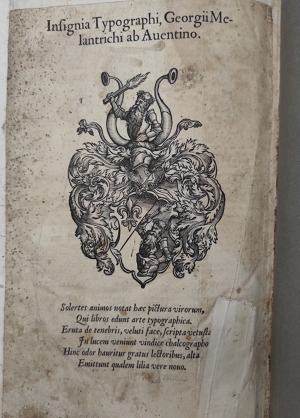 Insignia Typographi, Georgii Me-
lantrichi ab Auentino.
Solertes animos notat hæc pictura virorum,
Qui libros edunt arte typographica.
Eruta de tenebris, veluti face, scripta vetusta
In lucem veniunt vindice chalcographo
Hinc odor hauritur gratus lectoribus, alta
Emittunt qualem lilia vere nouo.